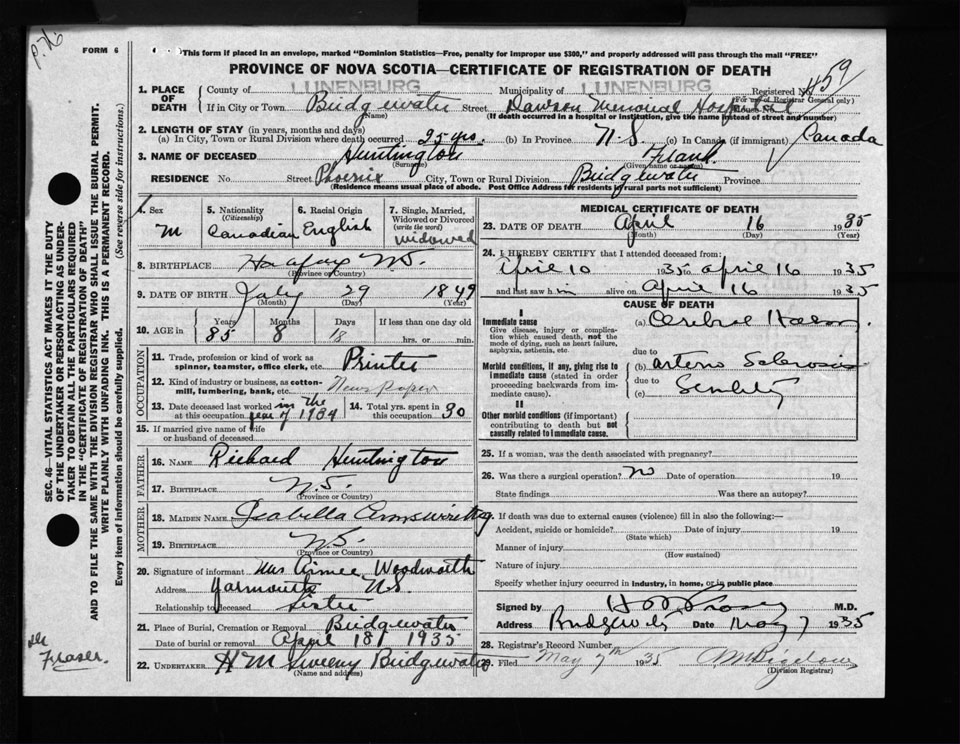 P. 76
FORM 6
This form if placed in an envelope, marked "Dominion Statistics—Free, penalty for improper use $300," and properly addressed will pass through the mail "FREE"
PROVINCE OF NOVA SCOTIA—CERTIFICATE OF REGISTRATION OF DEATH
459
1. PLACE OF DEATH
County of LUNENBURG Municipality of LUNENBURG Registered No.
(For use of Registrar General only)
If in City or Town Bridgewater Street Dawson Memorial Hospital
(Name) (If death occurred in a hospital or institution, give the name instead of street and number)
2. LENGTH OF STAY (in years, months and days)
(a) In City, Town or Rural Division where death occurred 25 yrs. (b) In Province N.S. (c) In Canada (if immigrant) Canada
3. NAME OF DECEASED Huntington Frank
(Surname) (Given name or names)
RESIDENCE No. Street Phoenix City, Town or Rural Division Bridgewater Province
(Residence means usual place of abode. Post Office Address for residents in rural parts not sufficient)
4. Sex M
5. Nationality (Citizenship) Canadian
6. Racial Origin English
7. Single, Married, Widowed or Divorced (write the word) widowed
8. BIRTHPLACE Halifax N.S.
(Province or Country)
9. DATE OF BIRTH July 29 1849
(Month) (Day) (Year)
10. AGE in Years 85 Months 8 Days 18 If less than one day hrs. or min.
OCCUPATION
11. Trade, profession or kind of work as spinner, teamster, office clerk, etc. Printer
12. Kind of industry or business, as cotton-mill, lumbering, bank, etc. News Paper
13. Date deceased last worked at this occupation in the year of 1934
14. Total yrs. spent in this occupation
15. If married give name of wife or husband of deceased
FATHER
16. NAME Richard Huntington
17. BIRTHPLACE N.S.
(Province or Country)
MOTHER
18. MAIDEN NAME Isabella
19. BIRTHPLACE N.S.
(Province or Country)
20. Signature of informant Mrs Aimee Woodworth
Address Yarmouth N.S.
Relationship to deceased Sister
21. Place of Burial, Cremation or Removal Bridgewater
Date of burial or removal April 18, 1935
22. UNDERTAKER H M Sweeny Bridgewater
(Name and address)
MEDICAL CERTIFICATE OF DEATH
23. DATE OF DEATH April 16 1935
(Month) (Day) (Year)
24. I HEREBY CERTIFY that I attended deceased from:
April 10 1935 to April 16 1935
and last saw him alive on April 16 1935
CAUSE OF DEATH
I
Immediate cause
Give disease, injury or complication which caused death, not the mode of dying, such as heart failure, asphyxia, asthenia, etc.
(a) Cerebral Haem.
due to
Morbid conditions, if any, giving rise to immediate cause (stated in order proceeding backwards from immediate cause).
(b) arterio Sclerosis
due to
(c) Senility
II
Other morbid conditions (if important) contributing to death but not causally related to immediate cause.
25. If a woman, was the death associated with pregnancy?
26. Was there a surgical operation? no Date of operation 19
State findings Was there an autopsy?
27. If death was due to external causes (violence) fill in also the following:—
Accident, suicide or homicide? Date of injury 19
(State which)
Manner of injury
(How sustained)
Nature of injury
Specify whether injury occurred in industry, in home, or in public place
Signed by M.D.
Address Bridgewater Date May 7 1935
28. Registrar's Record Number
29. Filed May 7th 1935
(Division Registrar)
SEC. 46—VITAL STATISTICS ACT MAKES IT THE DUTY
OF THE UNDERTAKER OR PERSON ACTING AS UNDER-
TAKER TO OBTAIN ALL THE PARTICULARS REQUIRED
IN THE "CERTIFICATE OF REGISTRATION OF DEATH"
AND TO FILE THE SAME WITH THE DIVISION REGISTRAR WHO SHALL ISSUE THE BURIAL PERMIT.
WRITE PLAINLY WITH UNFADING INK. THIS IS A PERMANENT RECORD.
Every item of information should be carefully supplied. (See reverse side for instructions.)
Fraser.